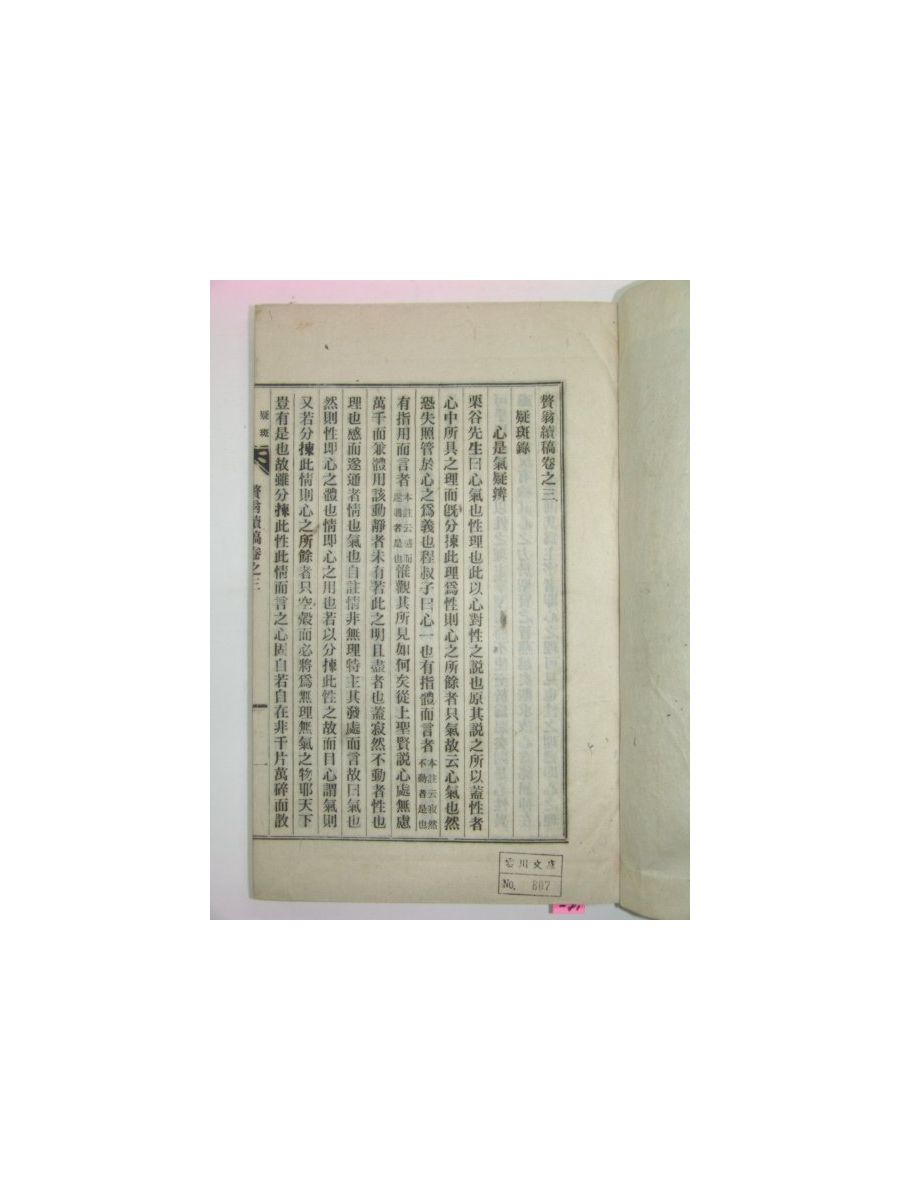 贅翁續稿卷之三
疑斑錄
心是氣疑辨
栗谷先生曰心氣也性理也此以心對性之說也原其說之所以蓋性者
心中所具之理而旣分揀此理爲性則心之所餘者只氣故云心氣也然
恐失照管於心之爲義也程叔子曰心一也有指體而言者本註云寂然不動者是也
有指用而言者本註云感而遂通者是也惟觀其所見如何矣從上聖賢說心處無慮
萬千而兼體用該動靜者未有若此之明且盡者也蓋寂然不動者性也
理也感而遂通者情也氣也自註情非無理特主其發處而言故曰氣也
然則性即心之體也情即心之用也若以分揀此性之故而目心謂氣則
又若分揀此情則心之所餘者只空殼而必將爲無理無氣之物耶天下
豈有是也故雖分揀此性此情而言之心固自若自在非千片萬碎而散
疑斑
贅翁續稿卷之三
一
川文庫
No. 807